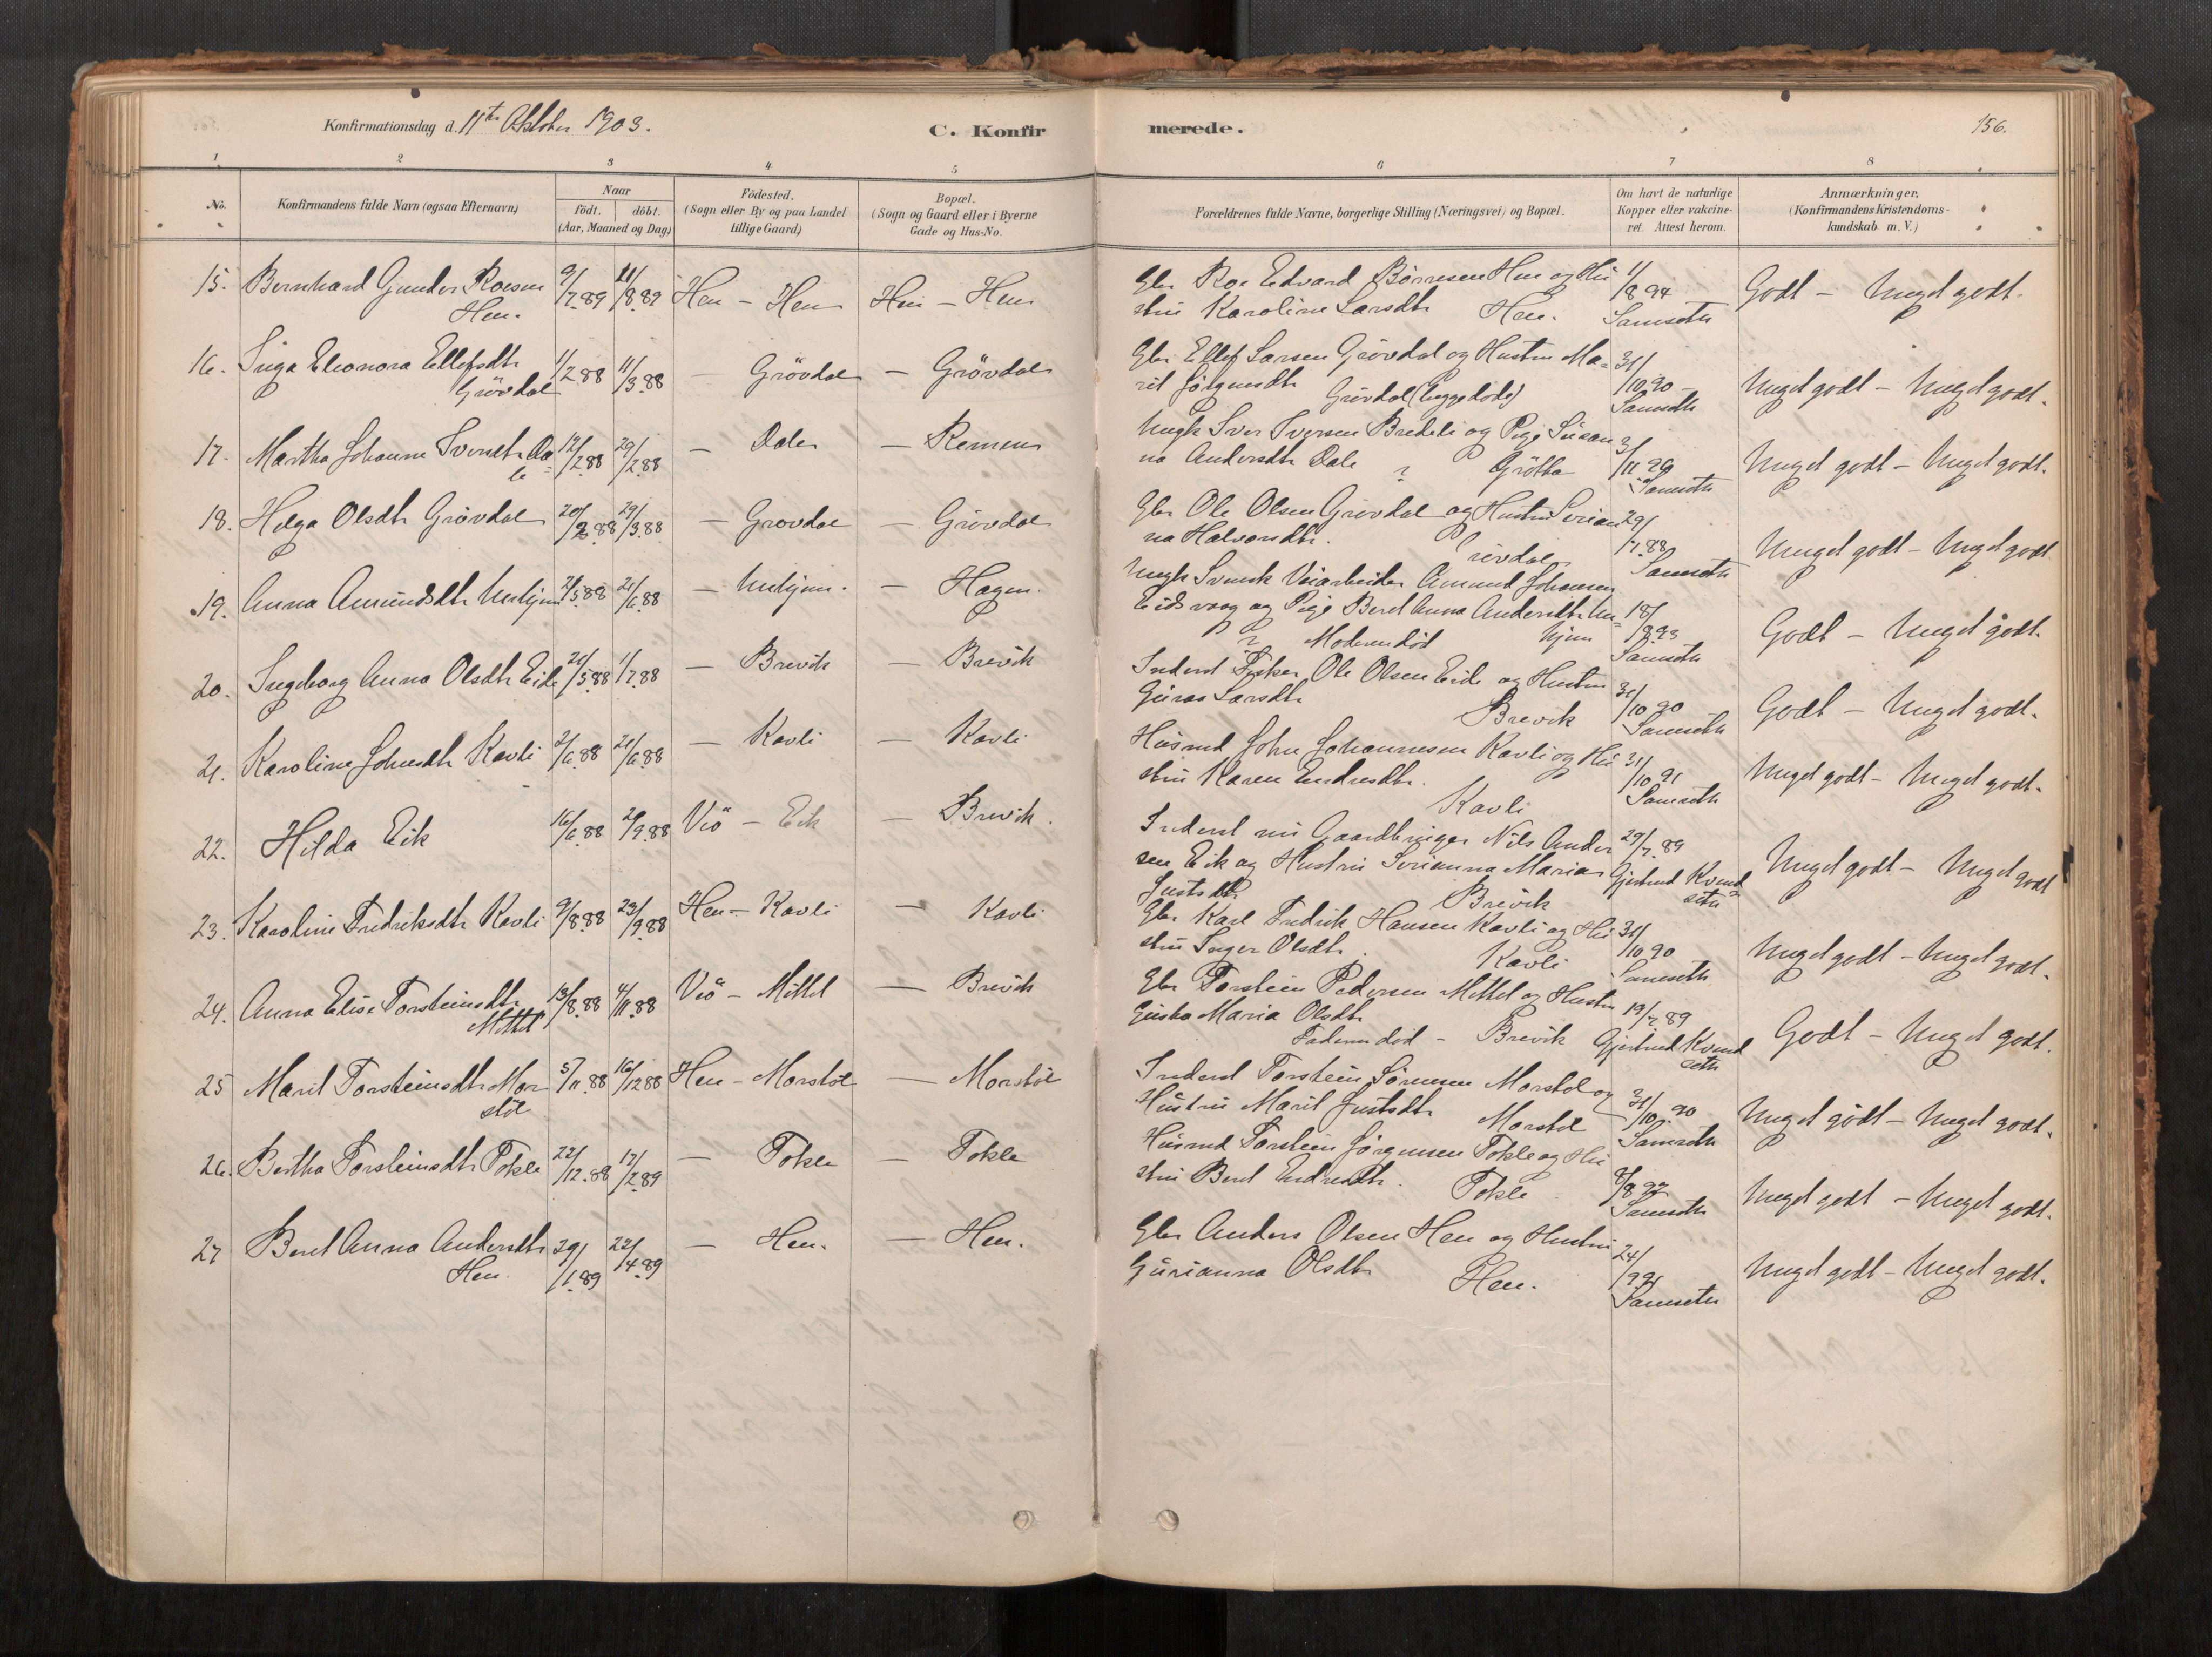 Konfirmationsdag d. 11te Oktober 1903.
C. Konfirmerede.
156.
1 2 3 4 5 6 7 8
No.
Konfirmandens fulde Navn (ogsaa Efternavn)
Naar
födt. döbt.
(Aar, Maaned og Dag)
Födested.
(Sogn eller By og paa Landet
tillige Gaard)
Bopæl.
(Sogn og Gaard eller i Byerne
Gade og Hus-No.
Forældrenes fulde Navne, borgerlige Stilling (Næringsvei) og Bopæl.
Om havt de naturlige
Kopper eller vakcine-
ret. Attest herom.
Anmærkninger,
(Konfirmandens Kristendoms-
kundskab m. V.)
15. Bernhard Gunder Roesen 9/7.89 11/8.89 Hen - Hen Hen - Hen
Hen.
Gbr Roe Edvard Börresen Hen og Hu
stru Karoline Larsdtr Hen.
1/8 94
Samseth
Godt - Meget godt.
16. Inga Eleonora Ellefsdtr 1/2 88 11/3.88 Grövdal - Grövdal
Grövdal
Gbr Ellef Larsen Grövdal og Hustru Ma-
rit Jörgensdtr Grövdal (begge döde)
31/10.90
Samseth
Meget godt - Meget godt.
17. Martha Johanne Iversdtr Da 12/2.88 29/2.88 - Dale - Remem
le
Ungk Iver Iversen Bredeli og Pige Susan
na Andersdtr Dale ? Grötta
3/11 90
Samseth
Meget godt - Meget godt.
18. Helga Olsdtr Grövdal 20/2.88 29/3.88 - Grövdal - Grövdal
Gbr Ole Olsen Grövdal og Hustru Serian
na Halvorsdtr. Grövdal
29/7.88
Samseth
Meget godt - Meget godt
19. Anna Amundsdtr Unhjem 2/5.88 21/6.88 - Unhjem. - Hagen.
Ungk Svensk Veiarbeider Amund Johansen
Eidsvaag og Pige Beret Anna Andersdtr Un-
? Moderen död hjem
18/
Samseth
Godt - Meget godt.
20. Ingeborg Anna Olsdtr Eide 21/5.88 1/7.88 - Brevik - Brevik
Inderst Fisker Ole Olsen Eide og Hustru
Guroa Larsdtr Brevik
31/10 90
Samseth
Godt - Meget godt.
21. Karoline Johnsdtr Kavli 2/6.88 21/6.88 - Kavli - Kavli
Husmd John Johannesen Kavli og Hu
stru Karen Endresdtr. Kavli
31/10 91
Samseth
Meget godt - Meget godt.
22. Hilda Eik 16/6.88 2/9.88 Vö - Eik - Brevik.
Inderst nu Gaardbruger Nils Ander
sen Eik og Hustru Serianna Maria
Justsdtr. Brevik
29/7.89
Gjertrud Kvend
seth
Meget godt - Meget godt
23. Karoline Fredriksdtr Kavli 9/8.88 23/9.88 Hen - Kavli - Kavli
Gbr Karl Fredrik Hansen Kavli og Hu
stru Inger Olsdtr. Kavli
31/10 90
Samseth
Meget godt - Meget godt.
24. Anna Elise Torsteinsdtr 13/8.88 4/11.88 Vö - Mittet - Brevik
Mittet
Gbr Torstein Pedersen Mittet og Hustru
Gurina Maria Olsdtr
Faderen död - Brevik
19/7.89
Gjertrud Kvend
seth
Godt - Meget godt.
25 Marit Torsteinsdtr Mor 5/11.88 16/12 88 Hen - Morstöl - Morstöl
stöl
Inderst Torstein Sörensen Morstöl og
Hustru Marit Justsdtr Morstöl
31/10.90
Samseth
Meget godt - Meget godt.
26. Bertha Torsteinsdtr Tokle 22/12.88 17/2.89 - Tokle - Tokle
Husmd Torstein Jörgensen Tokle og Hu
stru Beret Endresdtr. Tokle
8/8 92
Samseth
Meget godt - Meget godt.
27 Beret Anna Andersdtr 29/1.89 22/4.89 - Hen. - Hen.
Hen.
Gbr Anders Olsen Hen og Hustru
Gurianna Olsdtr Hen.
24/9 91
Samseth
Meget godt - Meget godt.